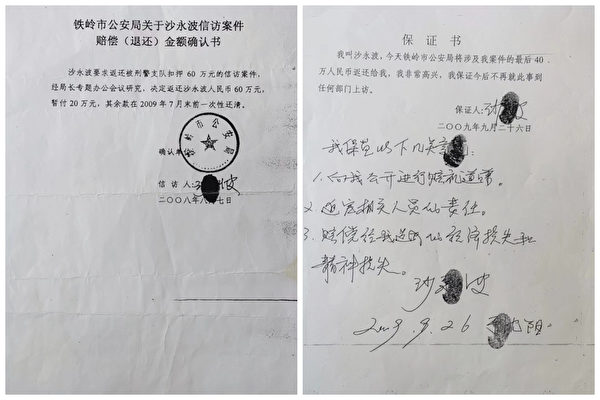 铁岭市公安局关于沙永波信访案件
赔偿（退还）金额确认书
沙永波要求返还被刑警支队扣押 60 万元的信访案件，
经局长专题办公会议研究，决定返还沙永波人民币 60 万元，
暂付 20 万元，其余款在 2009 年 7 月末前一次性还清。
铁岭市公安局
确认单
信访人：
波
二〇〇八年八 七日
保 证 书
我叫沙永波，今天铁岭市公安局将涉及我案件的最后 40
万人民币返还给我，我非常高兴，我保证今后不再就此事到
任何部门上访。
保证人：
二〇〇九年九月二十六号
我保留以下几
1. 向我公开进行赔礼道歉。
2. 追究相关人员的责任。
3. 赔偿给我造成的经济损失和
精神损失。
沙 波
2009.9.26